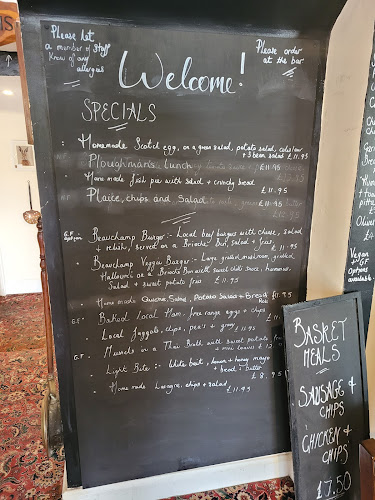 Please let
a member of staff
know of any
allergies
Please order
at the bar
Welcome!
SPECIALS
Homemade Scotch egg, on a green salad, potato salad, coleslaw
+ 3 bean salad £11.95
Ploughman's Lunch £11.95
Home made fish pie with salad + crunchy bread
£11.95
Plaice, chips and Salad £11.95
GF option
Beauchamp Burger:- Local beef burger with cheese, salad
+ relish, served on a Brioche Bun, salad + fries
£11.95
Beauchamp Veggie Burger:- Large grilled mushroom, grilled
Halloumi on a Brioche Bun with sweet chilli sauce, hummus,
Salad + sweet potato fries £11.95
Home made Quiche, Salad, Potato Salad + Bread £11.95
GF
Baked Local Ham, free range eggs + chips
£11.95
Local faggots, chips, peas + gravy £11.95
GF
Mussels in a Thai Broth with sweet potato fries
Light Bite:- White bait, lemon + honey mayo
+ bread + butter
£8.95
Home made Lasagne, chips + salad
£11.95
Vegan
+ GF
Options
available
BASKET
MEALS
SAUSAGE &
CHIPS
CHICKEN &
CHIPS
£7.50